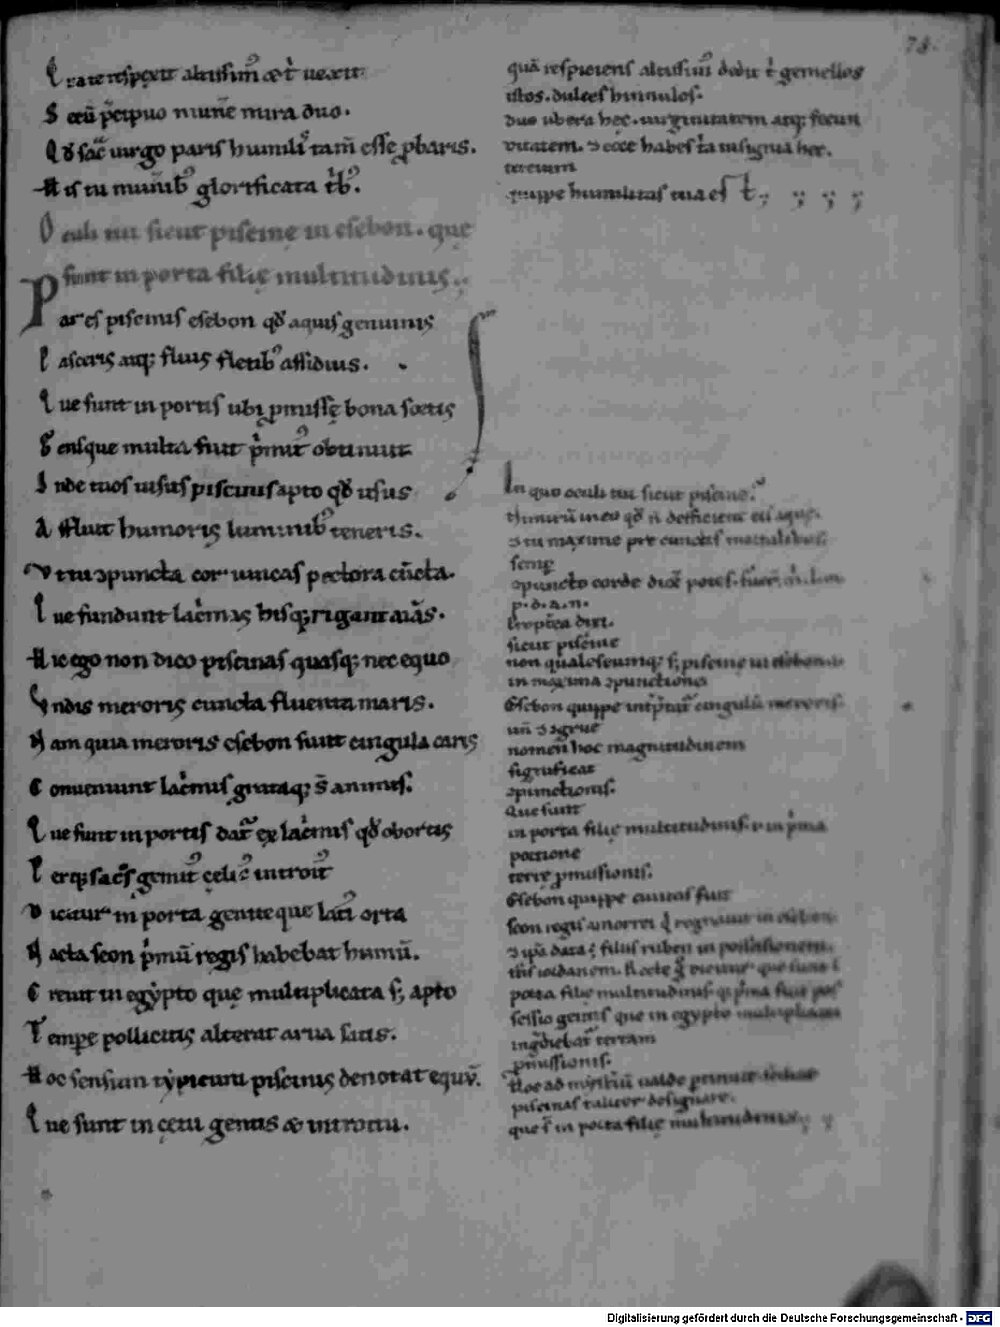 78.
E rate respexit altissim᷒ et t᷑ uexit
S ceu p̄cipuo mun̄e mira duo.
Q d̄ sac̄ uirgo paris humilis tam̄ esse ꝓbaris.
H is tu munib᷒ glorificata tib᷒.
O culi tui sicut piscinę in esebon. quę
sunt in porta filię multitudinis.
P ar es piscinis esebon qd̄ aquis genuinis
P asceris atq; fluis fletib᷒ assiduis.
Q ue sunt in portis ubi ꝓmissę bona sortis
G ensque multa fuit p̄mit᷒ obtinuit
I nde tuos uisus piscinis apto qd̄ usus
A ffluit humoris luminib᷒ teneris.
V t tu ɔpuncta cor unicas pectora cūcta.
Q ue fundunt lac̄mas hisq; rigant aīas.
H ic ego non dico piscinas quasq; nec equo
V ndis meroris cuncta fluenta maris.
N am quia meroris esebon fiunt cingula caris
C onueniunt lac̄mis grataq; s̄ animis.
Q ue sunt in portis dat᷑ ex lac̄mis qd̄ obortis
P erq; sac̄s gemit᷒ celic᷒ introit᷒
D icitur in porta gente que lati orta
N acta seon p̄mū regis habebat humū.
C reuit in egypto quę multiplicata s; apto
T empe polliciti alterat arua siti.
H oc sensum typicum piscinis denotat equū.
Q ue sunt in cętu gentis et introitu.
quā respiciens altissim᷒ dedit t᷑ gemellos
istos. dulces hinnulos.
duo ubera hec. uirginitatem atq; fecun
ditatem. ɔ ecce habes t̄a insignia hec.
tercium
quippe humilitas tua est. ; ; ; ;
In quo oculi tui sicut piscine.
ɔ tu maxime pre cunctis mortalibus
semp̄
ɔpuncto corde
p. d. a. n.
ꝓptea dixi.
sicut piscine
non qualescumq; s; piscine in esebon
in maxima ɔpunctione
Esebon quippe intp̄tat᷑ cingulū meroris.
un̄ ɔgrue
nomen hoc magnitudinem
significat
ɔpunctionis.
Que sunt
in porta filie multitudinis. i. in p̄ma
portione
terre ꝓmissionis.
Esebon quippe ciuitas fuit
seon regis amorrei q̄ regnauit in esebon
ɔ ipa data ē filiis ruben in possessionem
porta filie multitudinis. q̄ p̄ma fuit pos
sessio gentis que in egypto multiplicata
ingdiebat᷑ terram
ꝓmissionis.
Hoc ad misteriū ualde pertinet
piscinas taliter designare.
que s̄ in porta filie multitudinis
Digitalisierung gefördert durch die Deutsche Forschungsgemeinschaft - DFG